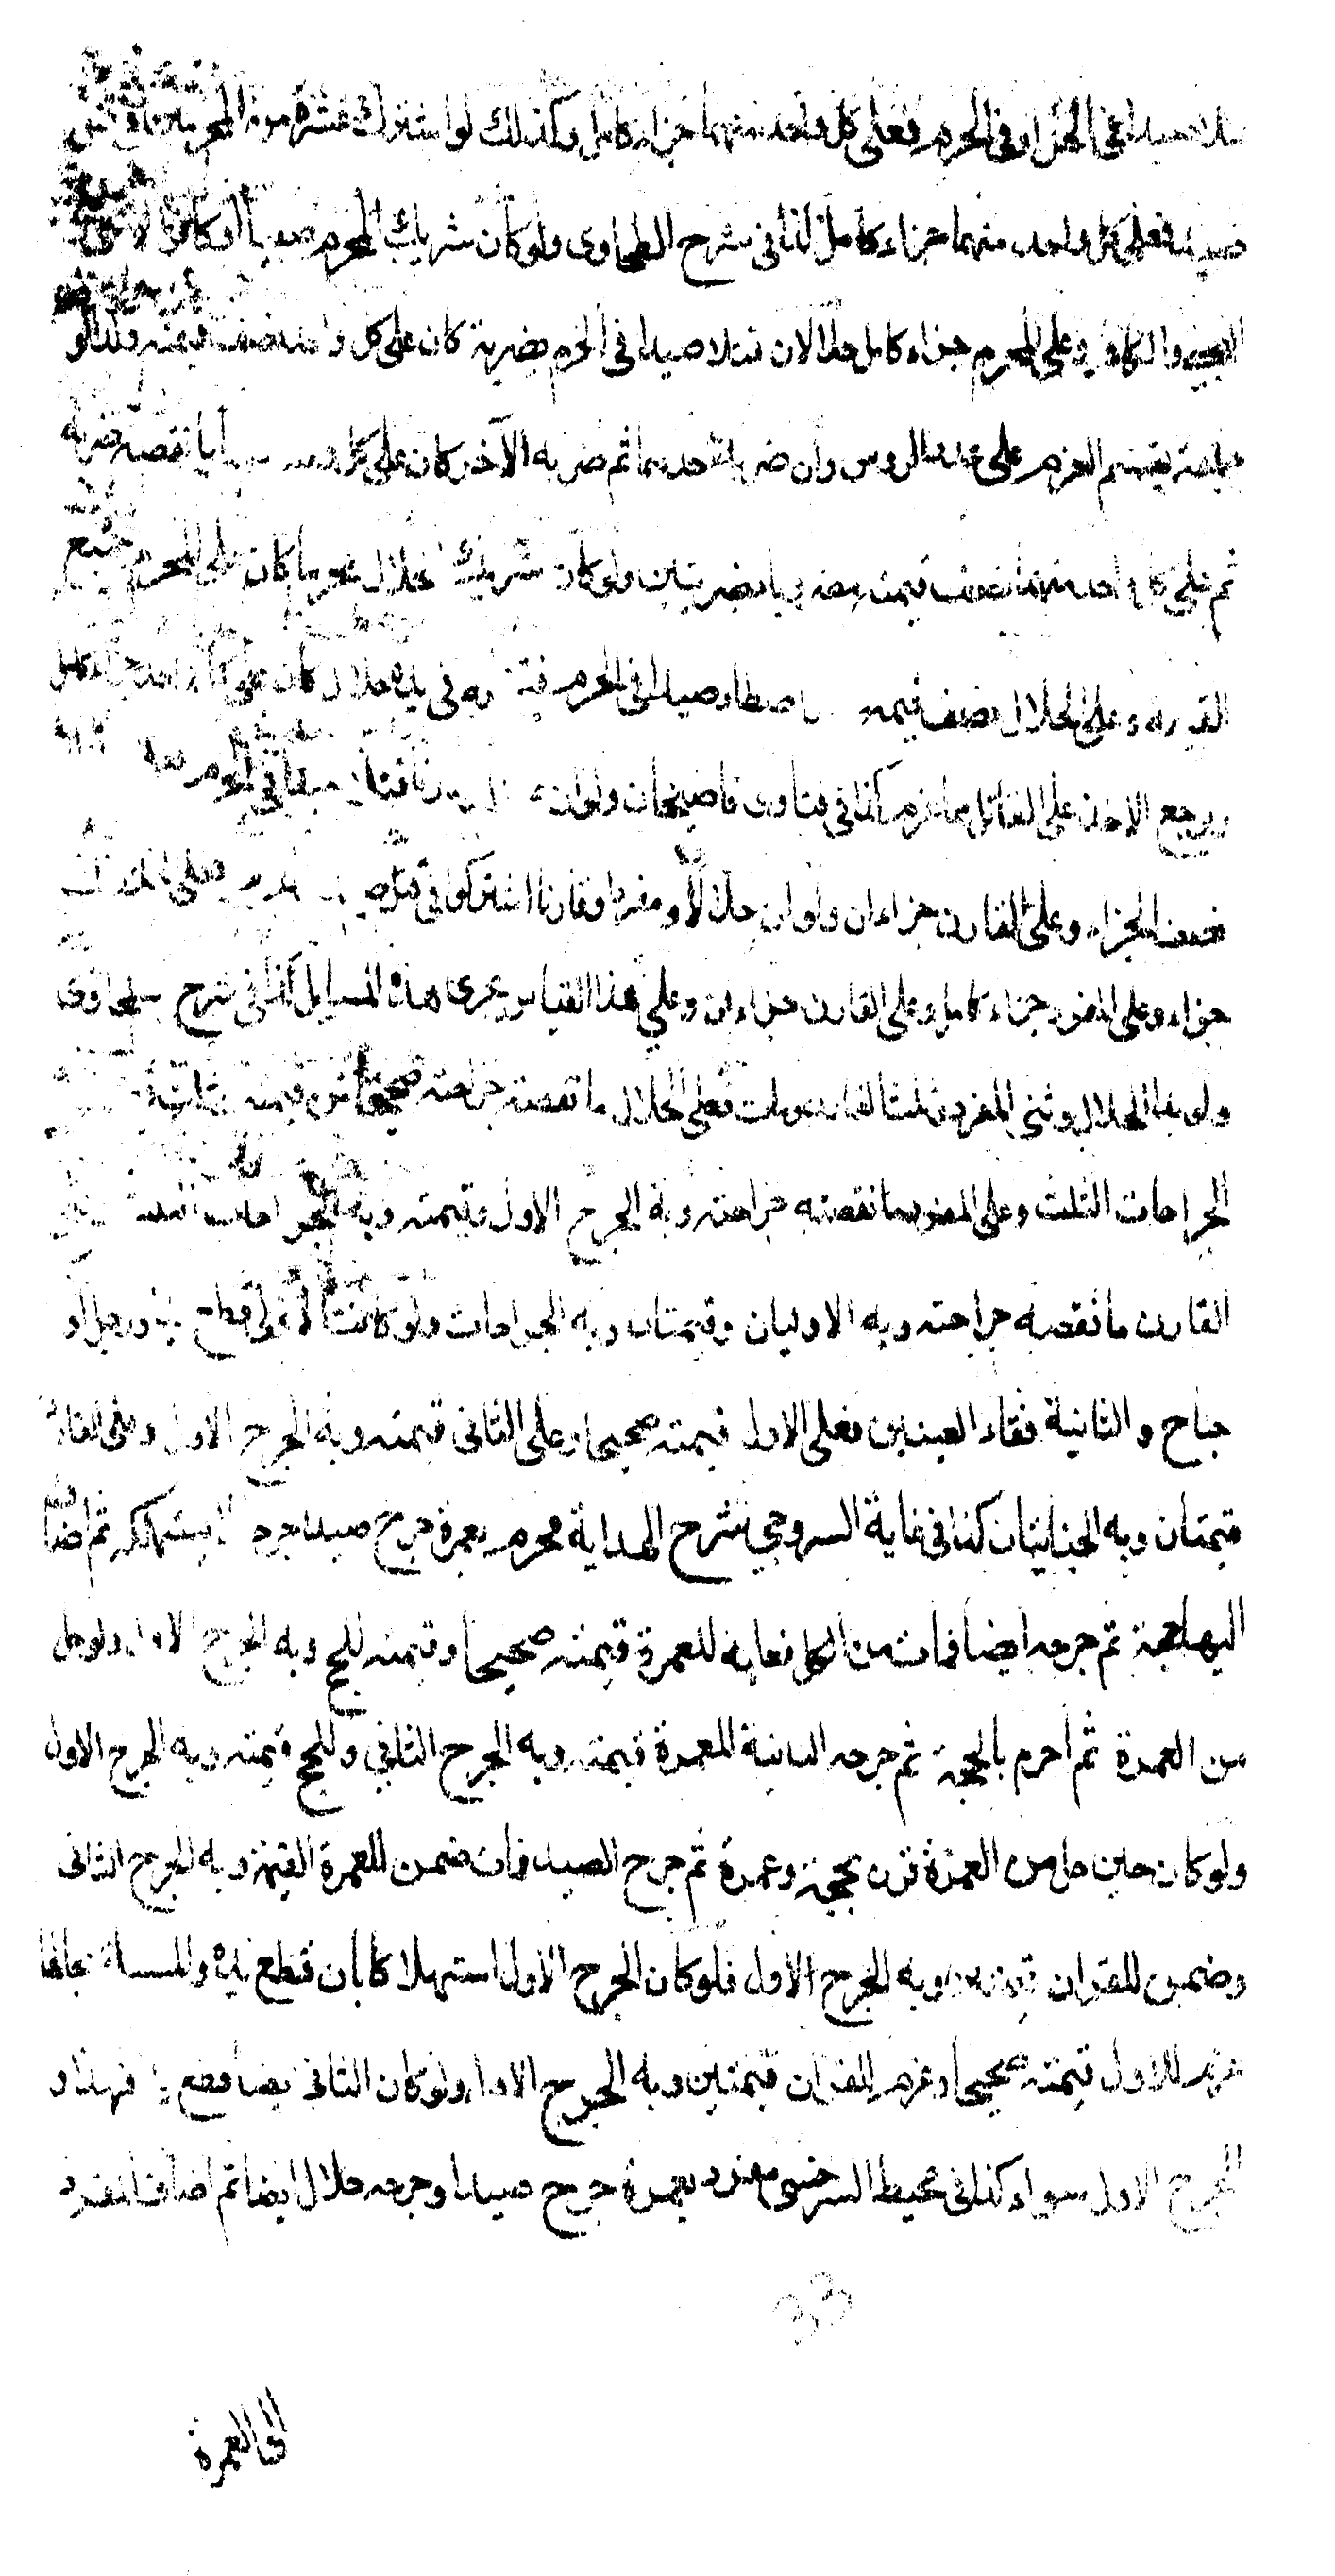 صيدا في الحل او في الحرم فعلى كل واحد منهما جزاء كامل وكذلك لو اشترك عشرة من المحرمين في قتل
صيد فعلى كل واحد منهما جزاء كامل كذا في شرح الطحاوى ولو كان شريك المحرم صبيا او كافرا لا شئ على
الصبي والكافر وعلى المحرم جزاء كامل حلالان قتلا صيدا في الحرم بضربة كان على كل واحد نصف قيمته ولو
جماعة يقسم الغرم على عدد الروس وان ضربه احدهما ثم ضربه الآخر كان على كل واحد منهما نقصه ضربه
ثم على كل واحد منهما نصف قيمته مضروبا بضربتين ولو كان شريك الحلال محرما كان على المحرم جميع
القيمة وعلى الحلال نصف قيمته اصطاد صيدا في الحرم فقتله في يده حلال كان على كل واحد جزاء كامل
ويرجع الاخذ على القاتل بما غرم كذا في فتاوى قاضيخان ولو ان قارنا قتلا صيدا في الحرم
نصف الجزاء وعلى القارن جزاءان ولو ان حلالا ومفردا وقارنا اشتركوا في قتل صيد فعلى الحلال ثلث
جزاء وعلى المفرد جزاء كامل وعلى القارن جزاءان وعلى هذا القياس يجرى هذه المسايل كذا في شرح الطحاوى
ولو بدا الحلال وثنى المفرد وثلث القارن ومات فعلى الحلال ما نقصته جراحته صحيحا ثم قيمته
الجراحات الثلث وعلى المفرد ما نقصته جراحته وبه الجرح الاول وقيمته وبه الجراحات الثلث
القارن ما نقصه جراحته وبه الاوليان وقيمتان وبه الجراحات ولو كانت الاولى قطع يد ورجل او
جناح والثانية فقاء العينين فعلى الاول قيمته صحيحا وعلى الثانى قيمته وبه الجرح الاول وعلى القارن
قيمتان وبه الجنايتان كذا في غاية السروجي شرح الهداية محرم بعمرة جرح صيدا جرحا لا يستهلكه ثم اضاف
اليها حجة ثم جرحه ايضا فمات من الكل فعليه للعمرة قيمته صحيحا وقيمته للحج وبه الجرح الاول ولو حل
من العمرة ثم احرم بالحجة ثم جرحه الثانية للعمرة قيمته وبه الجرح الثاني وللحج قيمته وبه الجرح الاول
ولو كان حين حل من العمرة قرن بحجة وعمرة ثم جرح الصيد فمات ضمن للعمرة القيمة وبه الجرح الثانى
وضمن للقران قيمتين وبه الجرح الاول فلو كان الجرح الاول استهلا كا بان قطع يده والمسالة بحالها
غرم للاول قيمته صحيحا وغرم للقران قيمتين وبه الجرح الاول ولو كان الثانى ايضا قطع يد فهذا و
الجرح الاول سواء كذا في محيط السرخسى مفرد بعمرة جرح صيدا وجرحه حلال ايضا ثم اضاف المفرد
33
الى العمرة